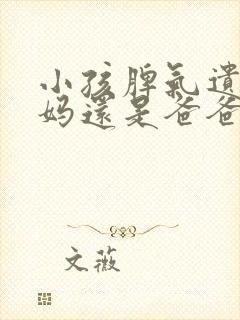 小孩脾氣遺
妈還是爸爸
文薇